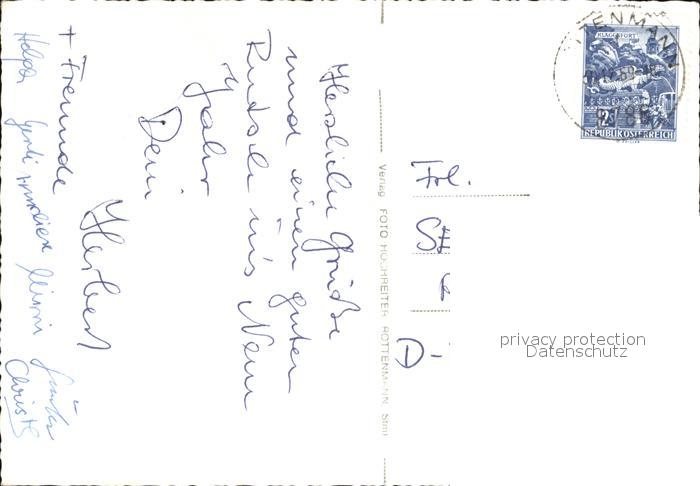 Herzliche Grüße
und einen guten
Rutsch ins Neue
Jahr
Dein
Herbert
+ Freunde
Holger Gerti Mimi Günter
Christl
Verlag FOTO HOCHREITER ROTTENMANN, Stmk
Frl.
St
TENMANN
8786
KLAGENFURT
S2
REPUBLIK ÖSTERREICH
privacy protection
Datenschutz